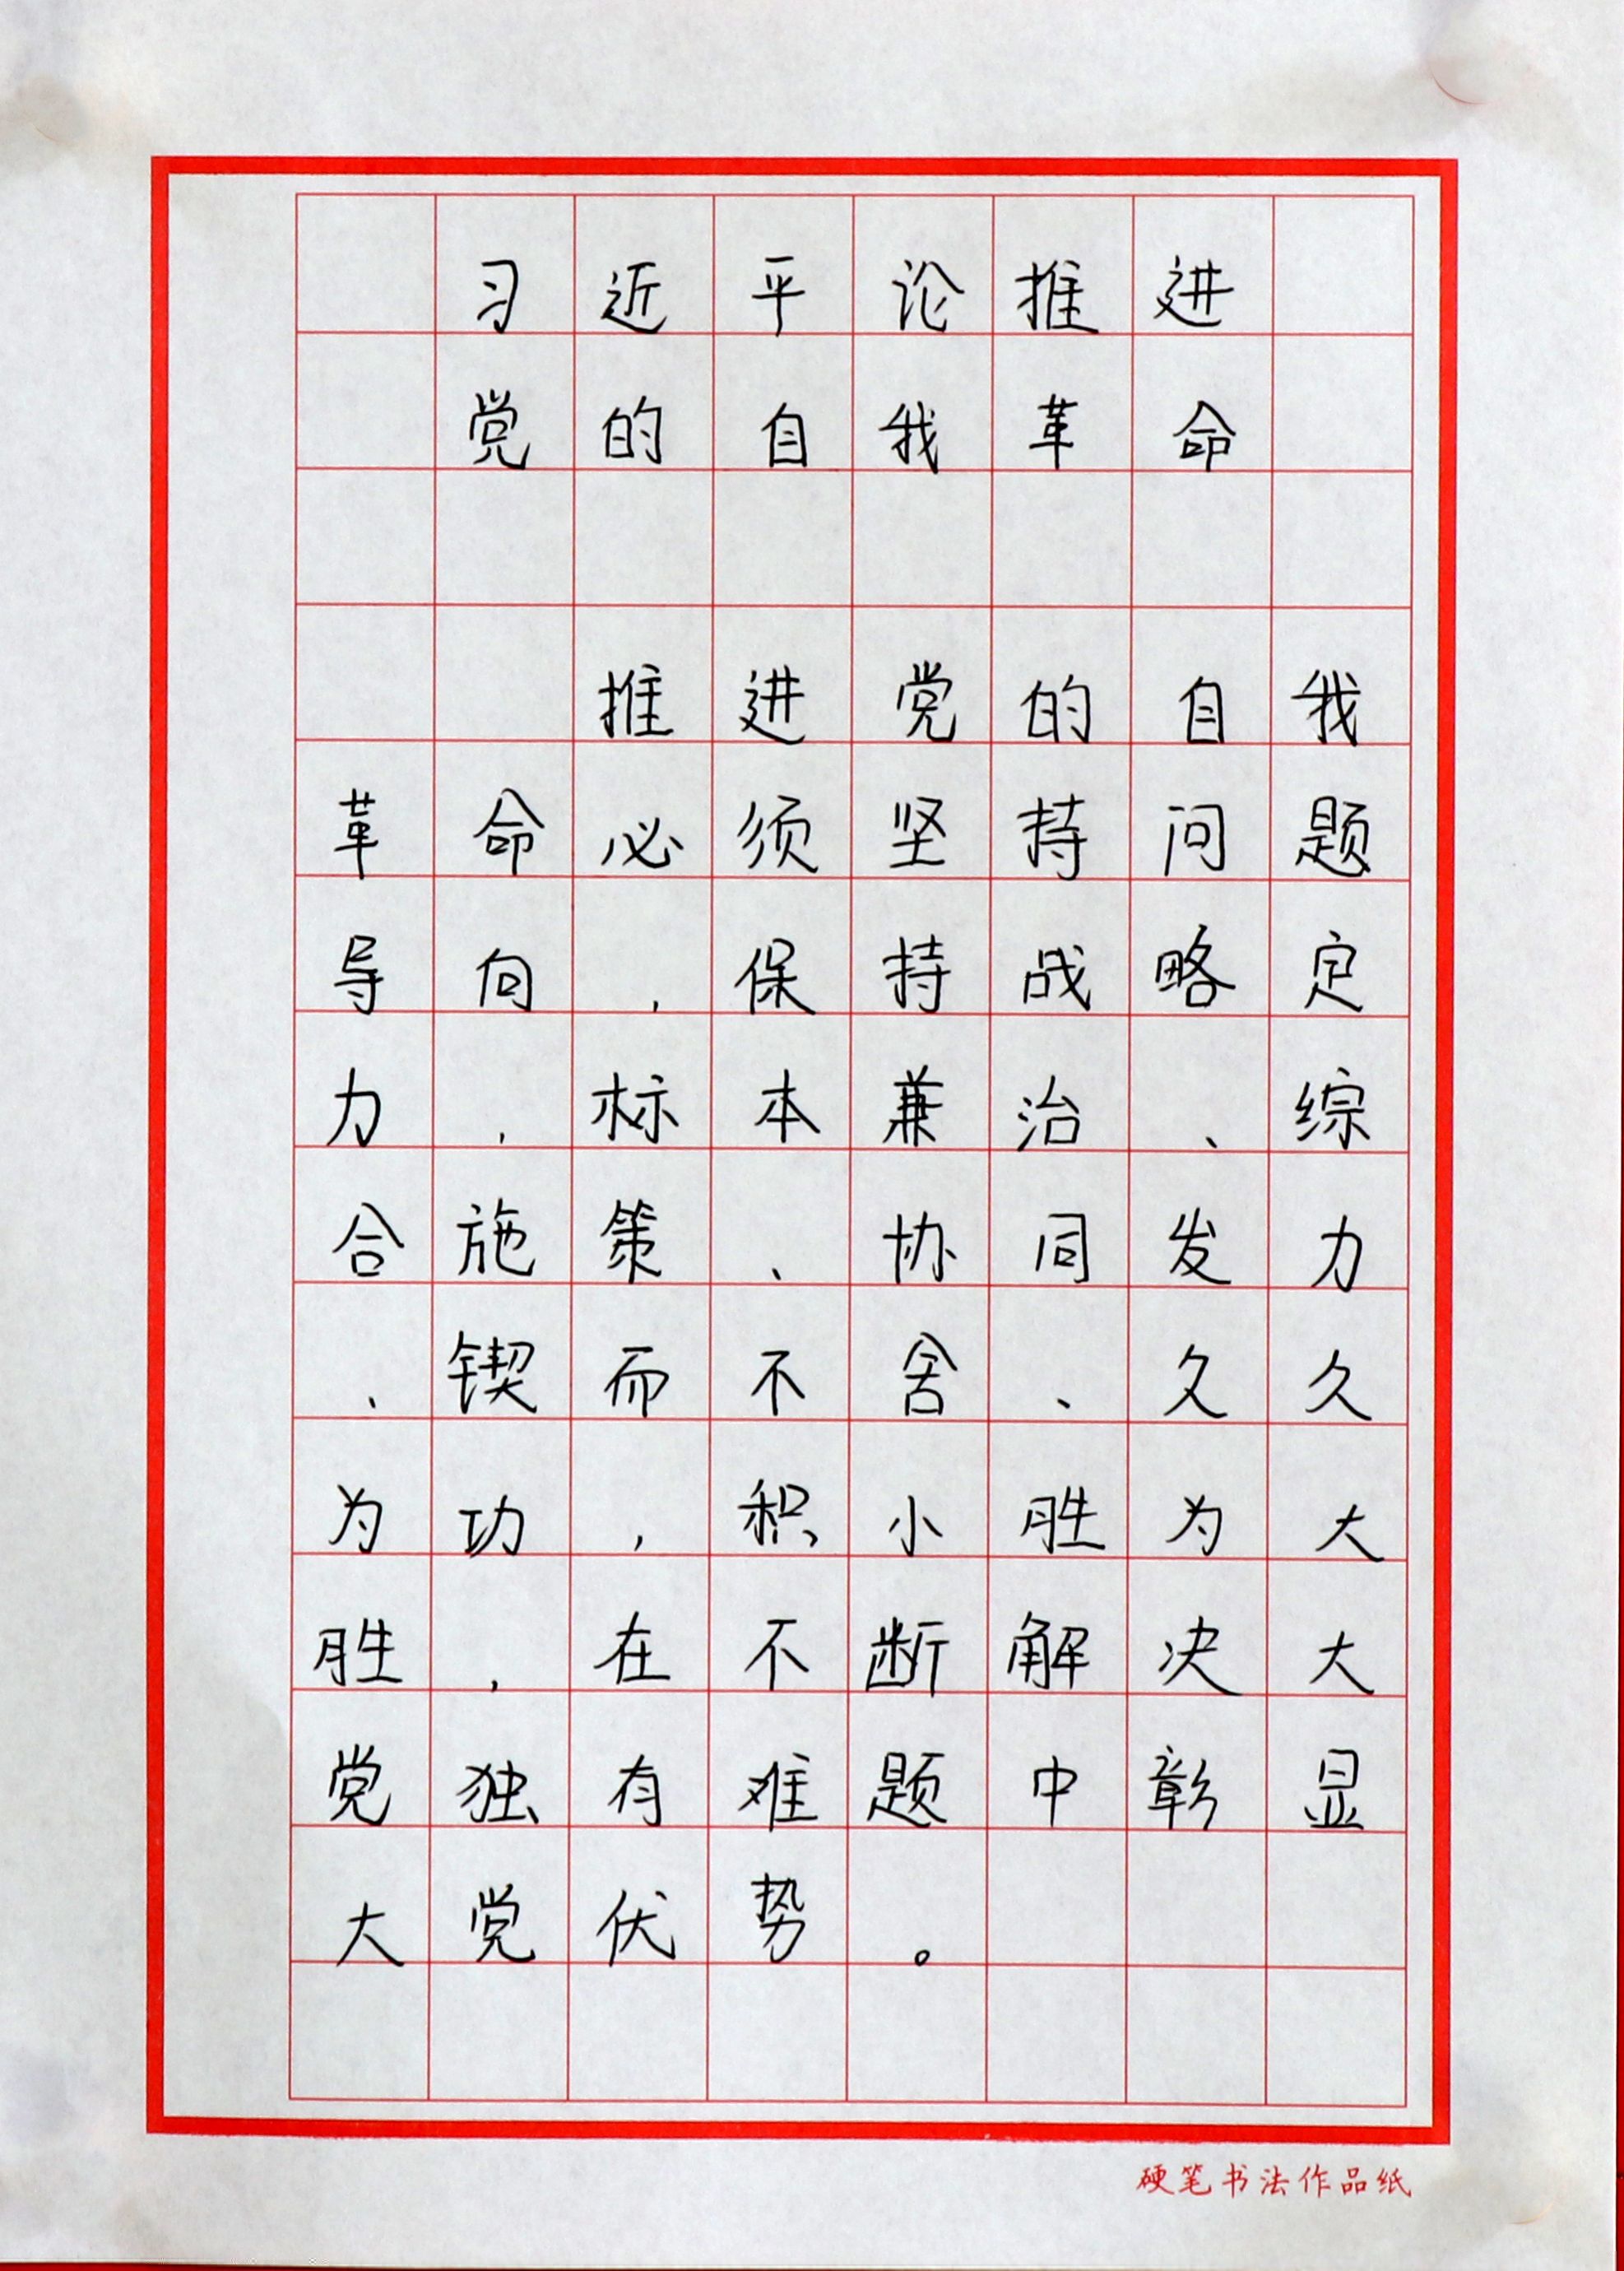 习近平论推进
党的自我革命
推进党的自我
革命必须坚持问题
导向，保持战略定
力，标本兼治、综
合施策、协同发力
、锲而不舍、久久
为功，积小胜为大
胜，在不断解决大
党独有难题中彰显
大党优势。
硬笔书法作品纸